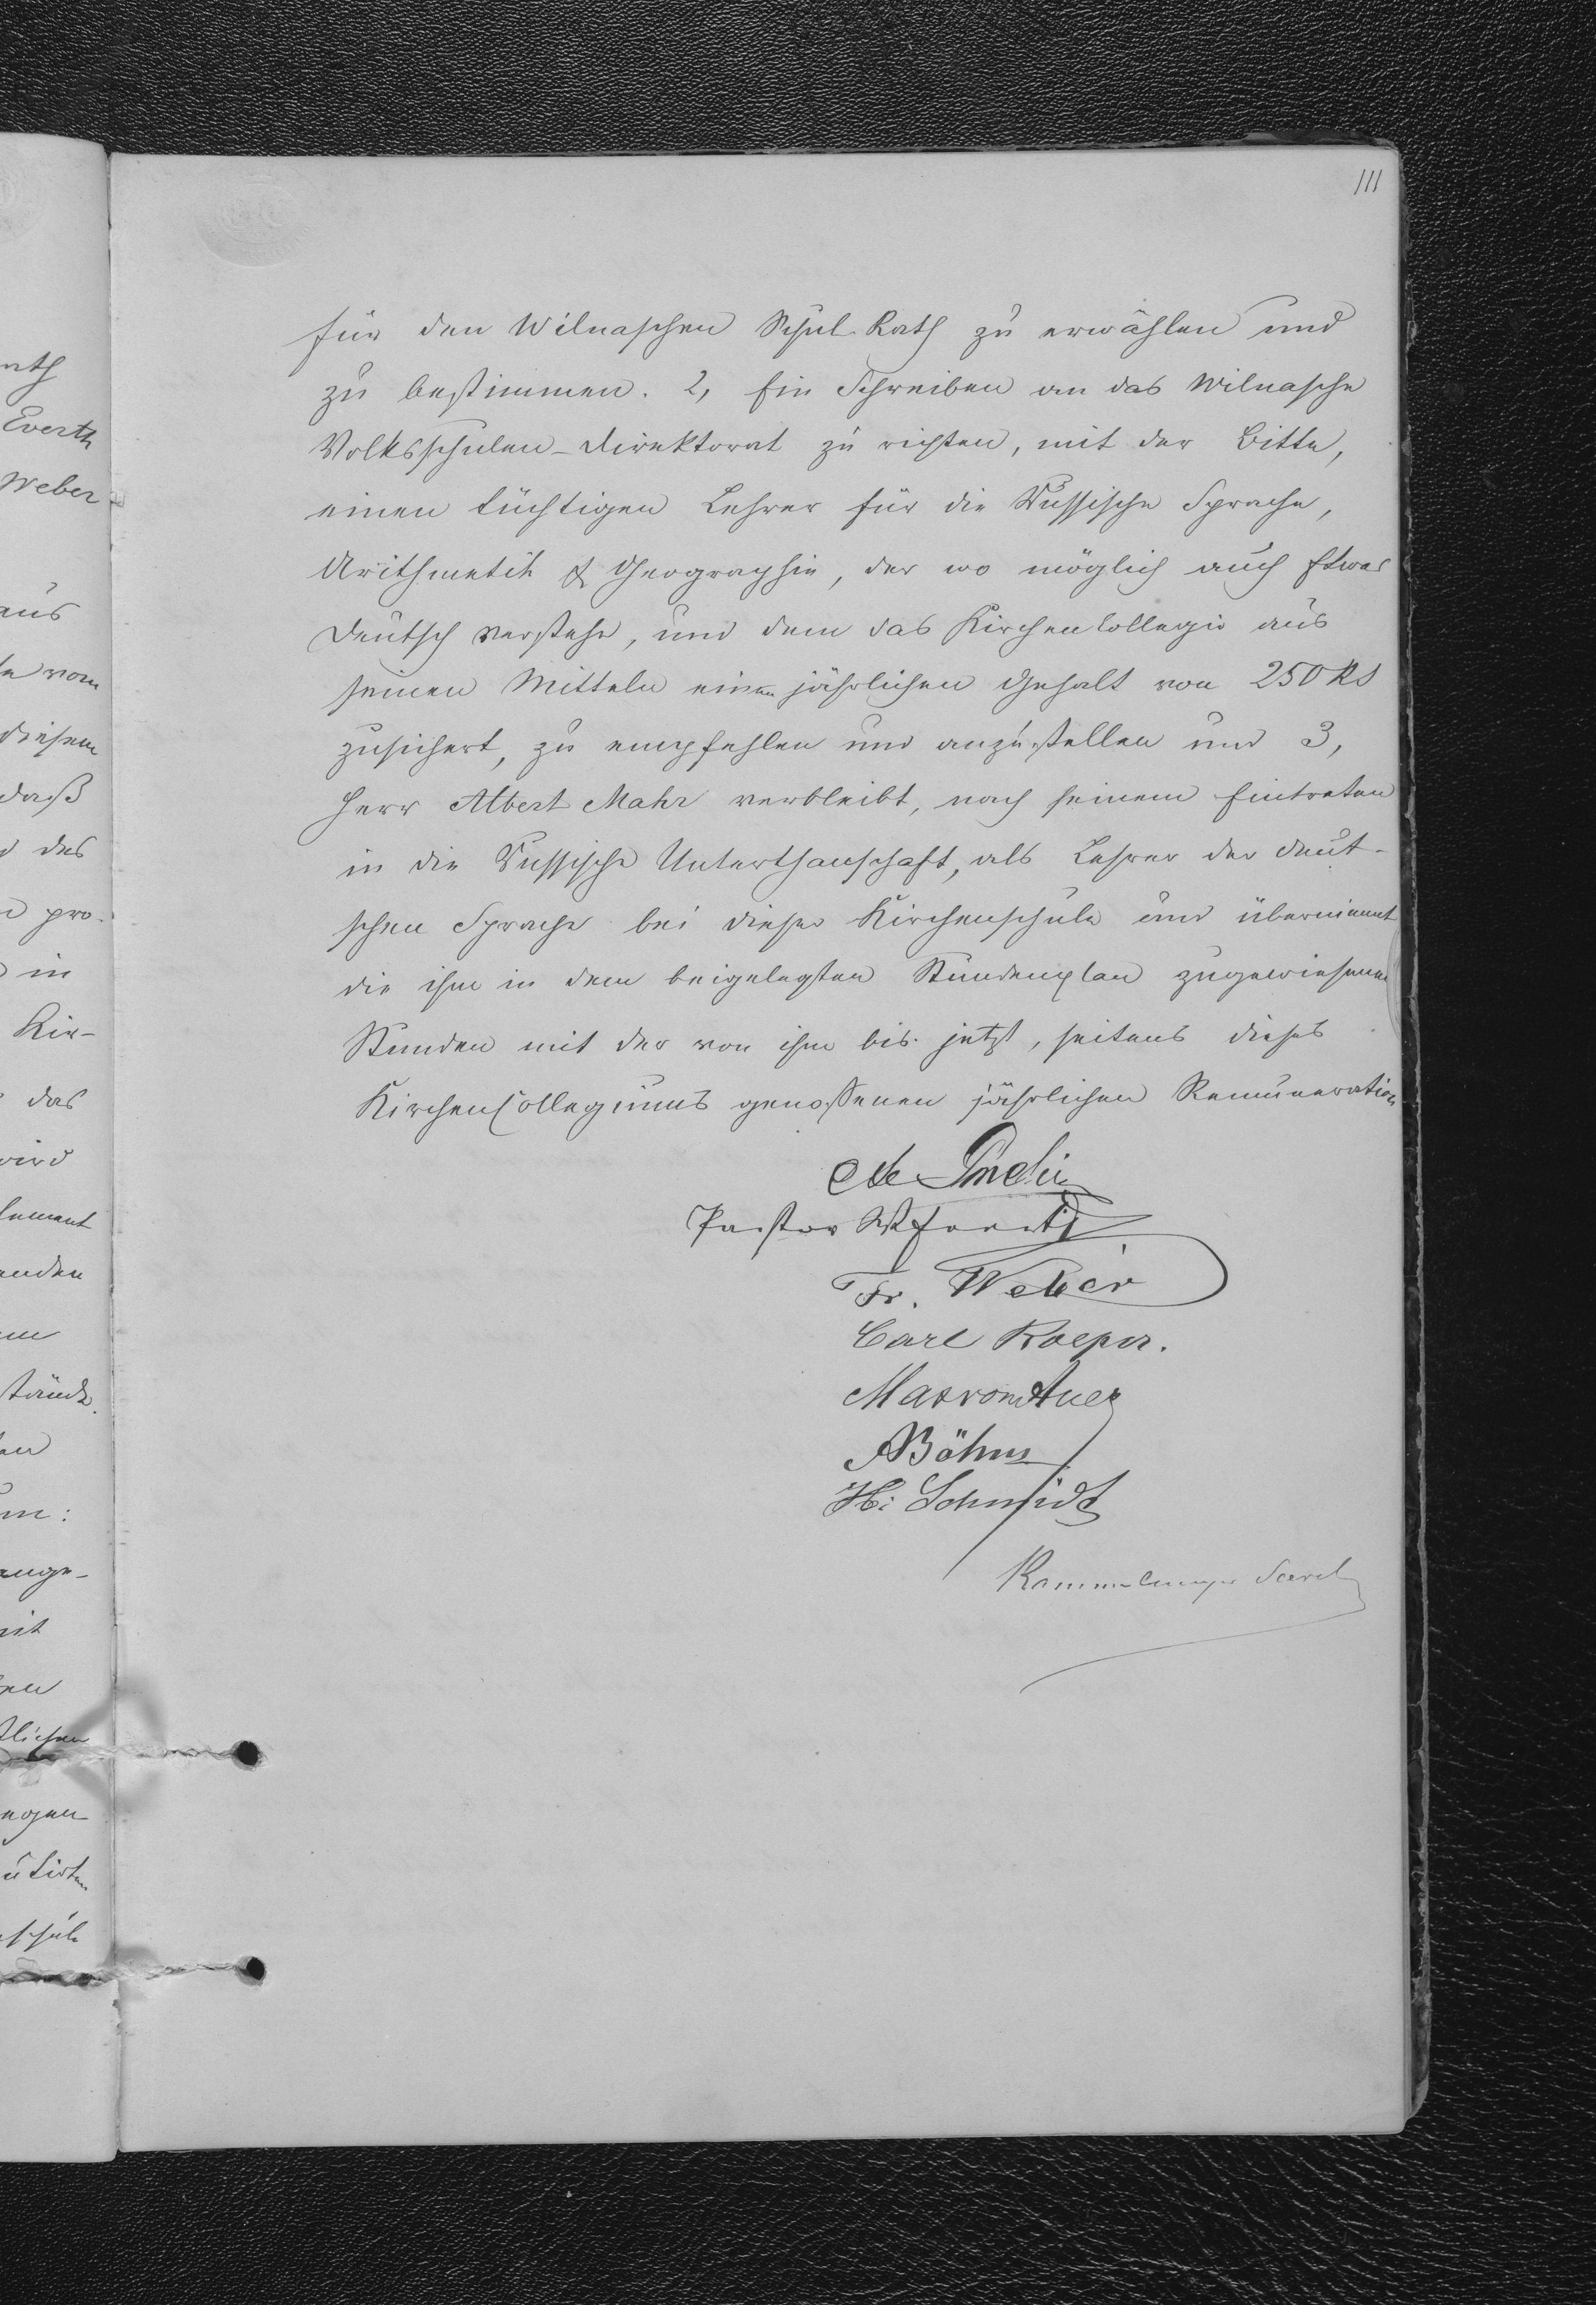 111
für den Wilnaschen Schul-Rath zu erwählen und
zu bestimmen. 2, Ein Schreiben an das Wilnasche
Volksschulen-Direktorat zu richten, mit der Bitte,
einen tüchtigen Lehrer für die Russische Sprache,
Arithmetik & Geographie, der wo möglich auch Etwas
Deutsch verstehe, und dem das KirchenCollegio aus
seinen Mitteln einen jährlichen Gehalt von 250 Rs
zusichert, zu empfehlen und anzustellen und 3,
Herr Albert Mahr verbleibt, nach seinem Eintreten
in die Russische Unterthanschaft, als Lehrer der deut-
schen Sprache bei dieser Kirchenschule und übernimmt
die ihm in dem beigelegten Stundenplan zugewiesenen
Stunden mit der von ihm bis jetzt, seitens dieses
KirchenCollegiums genossenen jährlichen Remuneration
Pastor Everth
Fr. Weber
Carl Roeper.
Max von Auer
ABöhm
H: Schmidt
Everth
Weber
aus
vom
diesem
daß
des
pro-
in
Kir-
das
wird